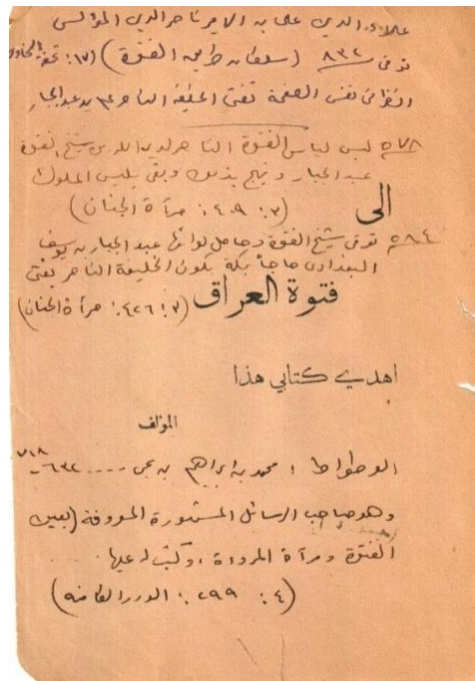 علاء الدين علي بن الامير ناصر الدين
توفي ٨٣٢ (سلطان حرافيش الفتوة) (١٧:
انظر في نفس الصفحة تفتي الخليفة الناصر عن يد عبدالجبار
٥٧٨ لبس لباس الفتوة الناصر لدين الله من شيخ الفتوة
عبد الجبار و بذلك وبقي يلبس الملوك
الى
(٣: ٤٠٩: مرآة الجنان)
٥٨٤ توفي شيخ الفتوة وحامل لوائها عبد الجبار بن يوسف
البغدادي حاجاً بمكة يكون الخليفة الناصر تفتى
فتوة العراق
(٣: ٤٢٦: مرآة الجنان)
اهدي كتابي هذا
المؤلف
الوطواط: محمد بن ابراهيم بن يحيى .... ٦٣٢ - ٧١٨
وهو صاحب الرسائل المشهورة المعروفة (بعين
الفتوة ومرآة المروءة، وكتب له عليها . . .
(٤: ٢٩٩: الدرر الكامنة)